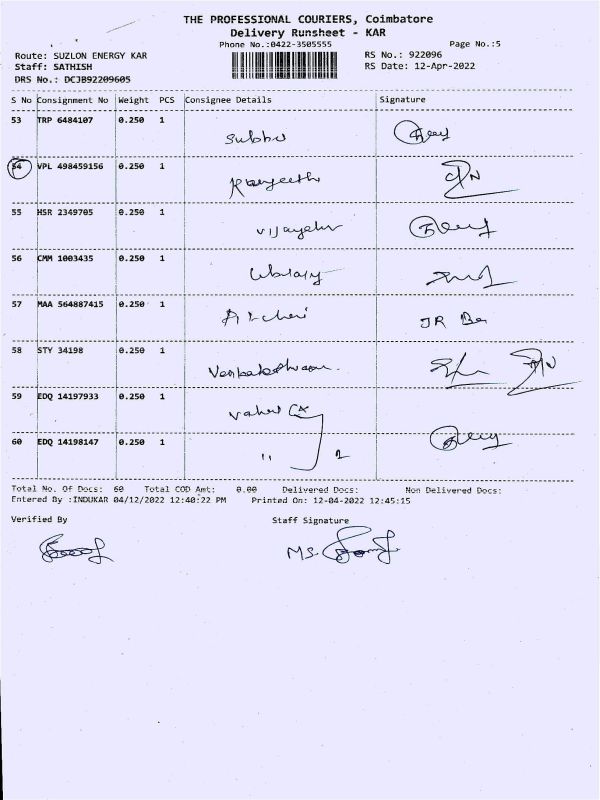 THE PROFESSIONAL COURIERS, Coimbatore
Delivery Runsheet - KAR
Phone No.:0422-3505555 Page No.:5
Route: SUZLON ENERGY KAR RS No.: 922096
Staff: SATHISH RS Date: 12-Apr-2022
DRS No.: DCJB92209605
S No Consignment No Weight PCS Consignee Details Signature
53 TRP 6484107 0.250 1
Subbu
54 VPL 498459156 0.250 1
Ranjeeth
55 HSR 2349705 0.250 1
56 CMM 1003435 0.250 1
Library
57 MAA 564887415 0.250 1
58 STY 34198 0.250 1
59 EDQ 14197933 0.250 1
60 EDQ 14198147 0.250 1
" 2
Total No. Of Docs: 60 Total COD Amt: 0.00 Delivered Docs: Non Delivered Docs:
Entered By :INDUKAR 04/12/2022 12:40:22 PM Printed On: 12-04-2022 12:45:15
Verified By Staff Signature
MS.